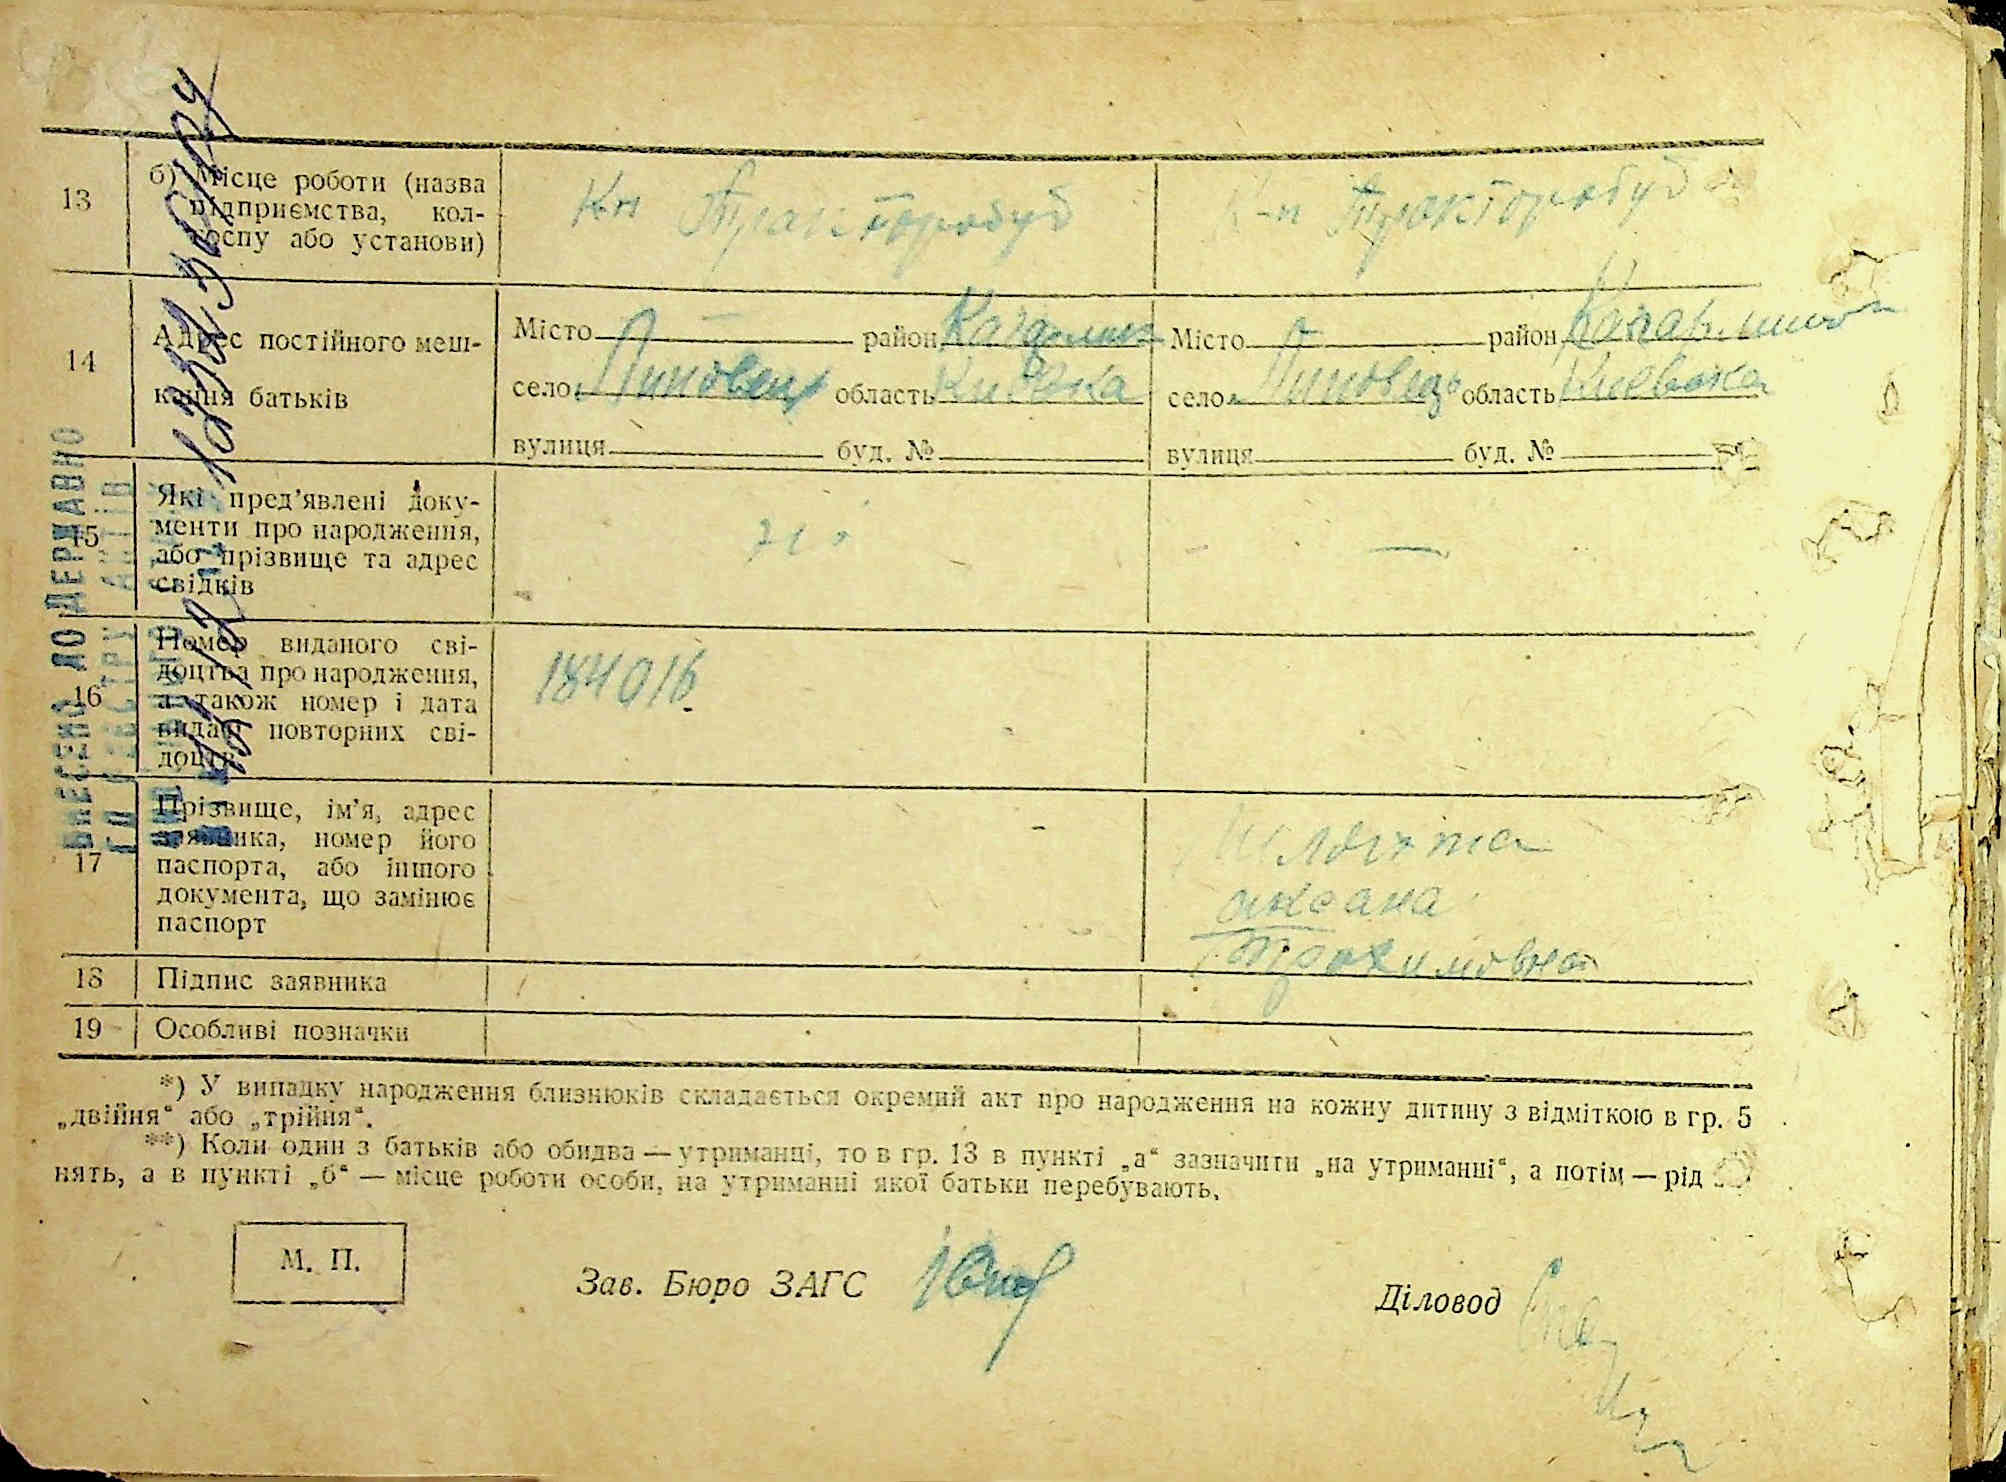 13
б) Місце роботи (назва
підприємства, кол-
госпу або установи)
К-п Тракторобуд
К-п Тракторобуд
14
Адрес постійного меш-
кання батьків
Місто — район
село Липовец область Київска
вулиця буд. №
Місто — район
село Липовець область Киевска
вулиця буд. №
15
Які пред'явлені доку-
менти про народження,
або прізвище та адрес
свідків
—
16
Номер виданого сві-
доцтва про народження,
а також номер і дата
видачі повторних сві-
доцтв
184016
17
Прізвище, ім'я, адрес
заявника, номер його
паспорта, або іншого
документа, що замінює
паспорт
оксана
Трохимовна
18
Підпис заявника
19
Особливі позначки
ВНЕСЕНО ДО ДЕРЖАВНО
ГО РЕЄСТРУ АКТІВ
*) У випадку народження близнюків складається окремий акт про народження на кожну дитину з відміткою в гр. 5
„двійня“ або „трійня“.
**) Коли один з батьків або обидва — утриманці, то в гр. 13 в пункті „а“ зазначити „на утриманні“, а потім — рід
нять, а в пункті „б“ — місце роботи особи, на утриманні якої батьки перебувають.
М. П.
Зав. Бюро ЗАГС
Діловод